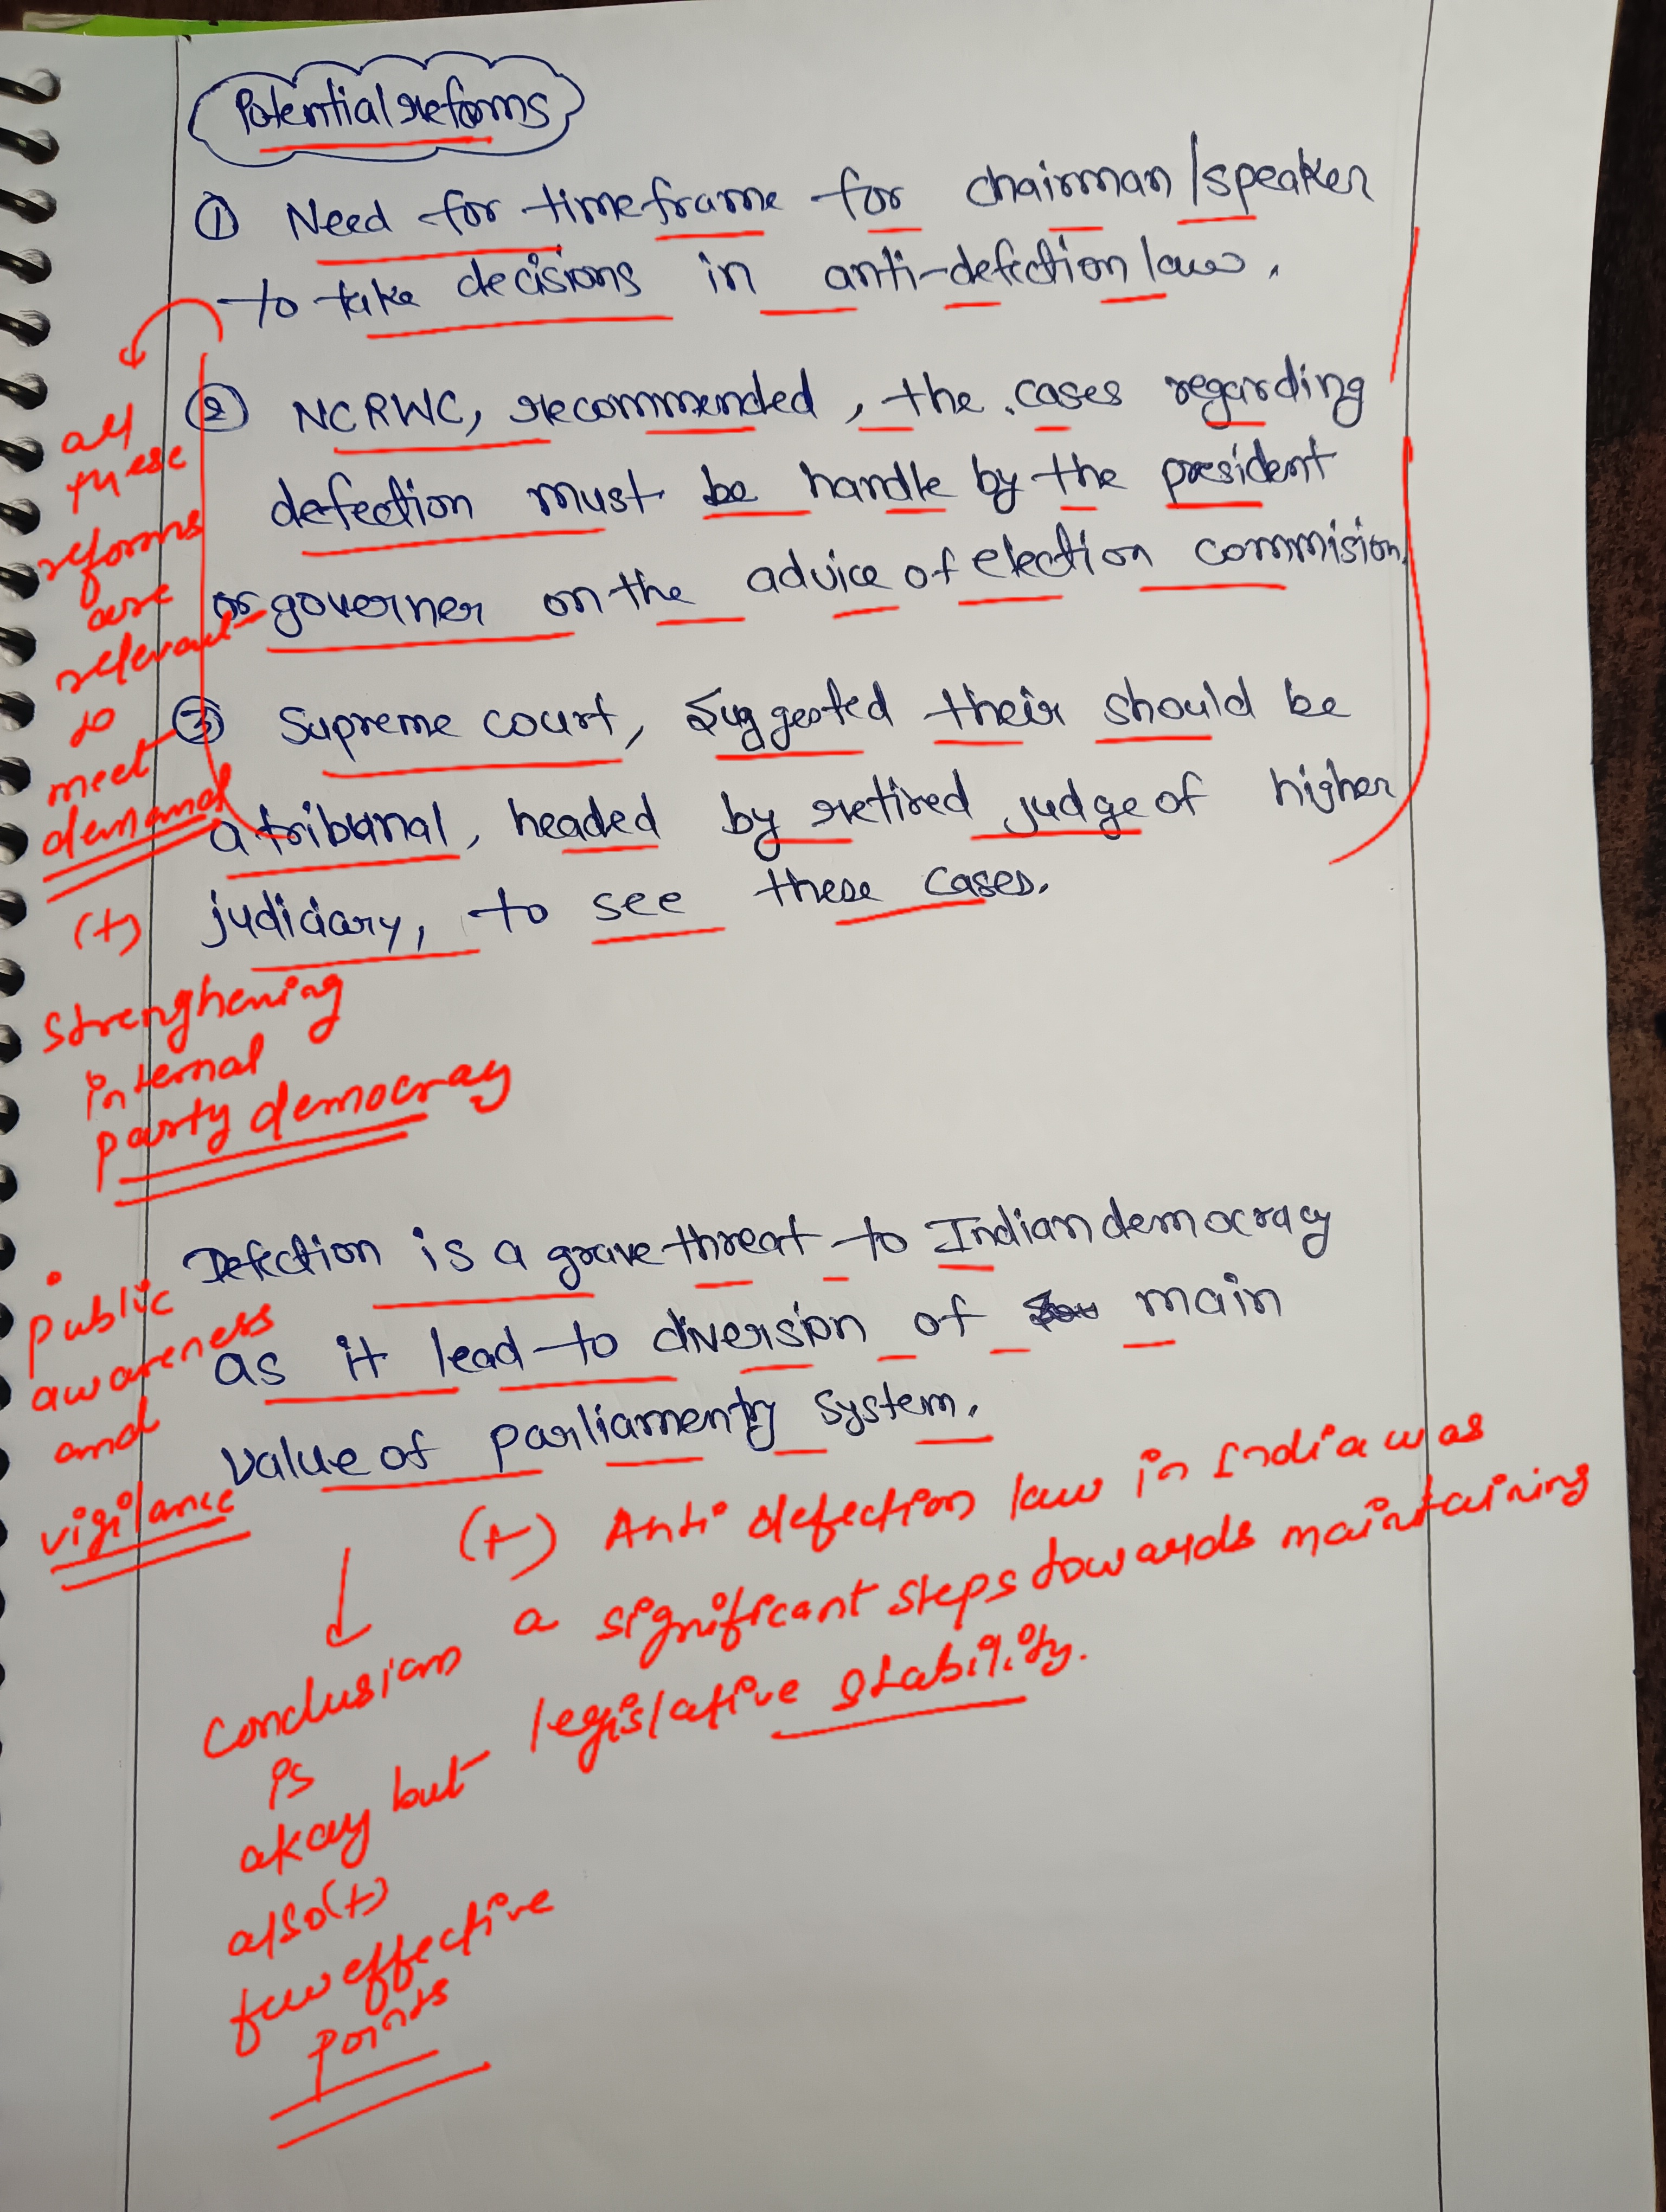 Potential reforms
① Need for timeframe for chairman/speaker
to take decisions in anti-defection law.
② NCRWC, recommended, the cases regarding
defection must be handle by the president
or governer on the advice of election commision.
③ Supreme court, suggested their should be
a tribunal, headed by retired judge of higher
judiciary, to see these cases.
all
these
reforms
are
relevant
to
meet
demand
(+)
Strenghening
internal
party democracy
Defection is a grave threat to Indian democracy
as it lead to diversion of main
value of parliamentry system.
Public
awareness
and
vigilance
(+) Anti defection law in India was
a significant steps towards maintaining
legislative stability.
Conclusion
is
okay but
also(+)
few effective
points